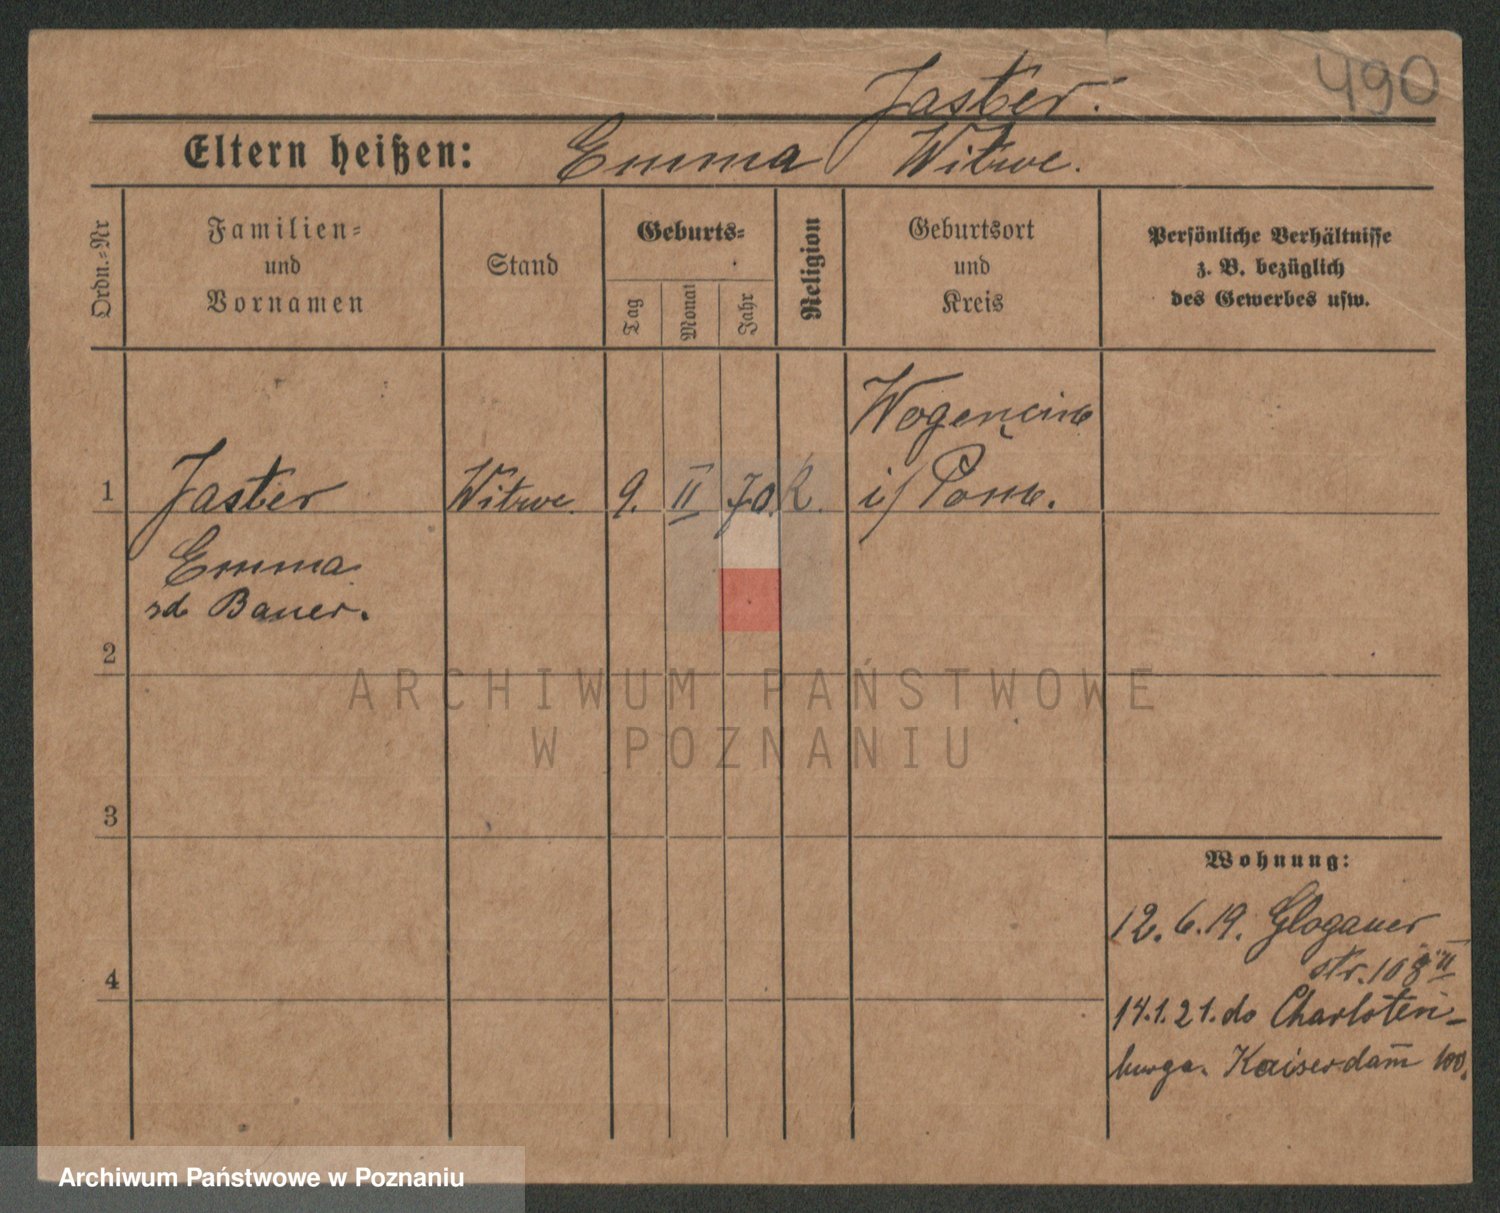 490
Jaster.
Eltern heißen: Emma Witwe.
Ordn.-Nr
Familien-
und
Vornamen
Stand
Geburts-
Tag
Monat
Jahr
Religion
Geburtsort
und
Kreis
Persönliche Verhältnisse
z. B. bezüglich
des Gewerbes usw.
1
Jaster
Witwe.
9.
II
70.
K.
i/ Pom.
Emma
Bauer.
2
3
4
Wohnung:
12.6.19. Glogauer
str. 108 II
14.1.21. do Charloten-
burga. Kaiserdam̅ 100.
ARCHIWUM PAŃSTWOWE
W POZNANIU
Archiwum Państwowe w Poznaniu